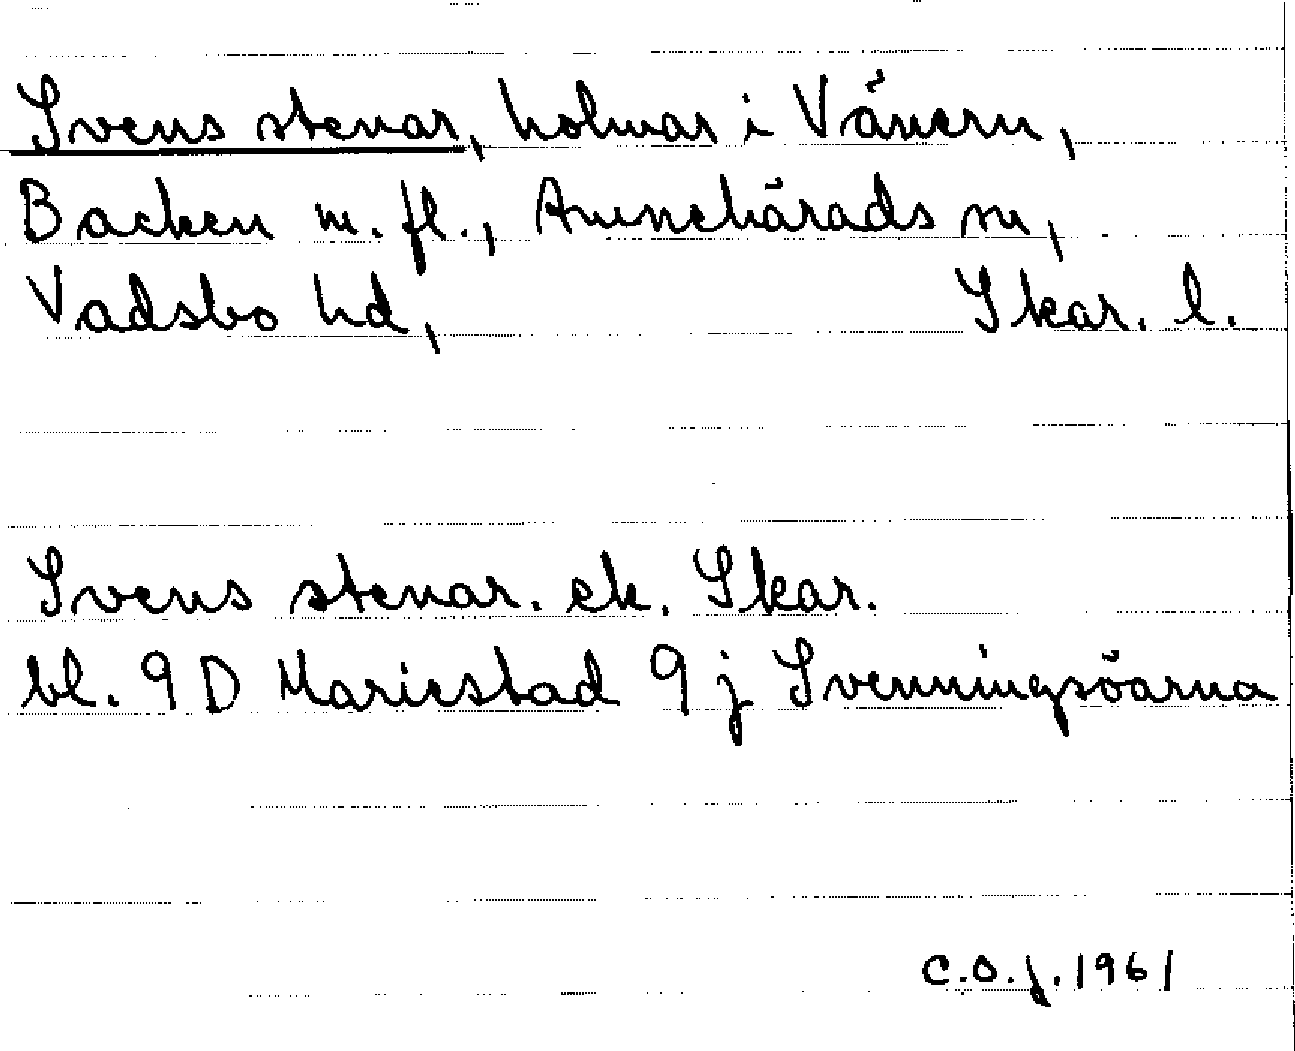 Svens stenar, holmar i Vänern,
Backen m. fl., Amnehärads sn,
Vadsbo hd, Skar. l.
Svens stenar. ek. Skar.
bl. 9 D Mariestad 9 j Svenningsöarna
C.O.J. 1961